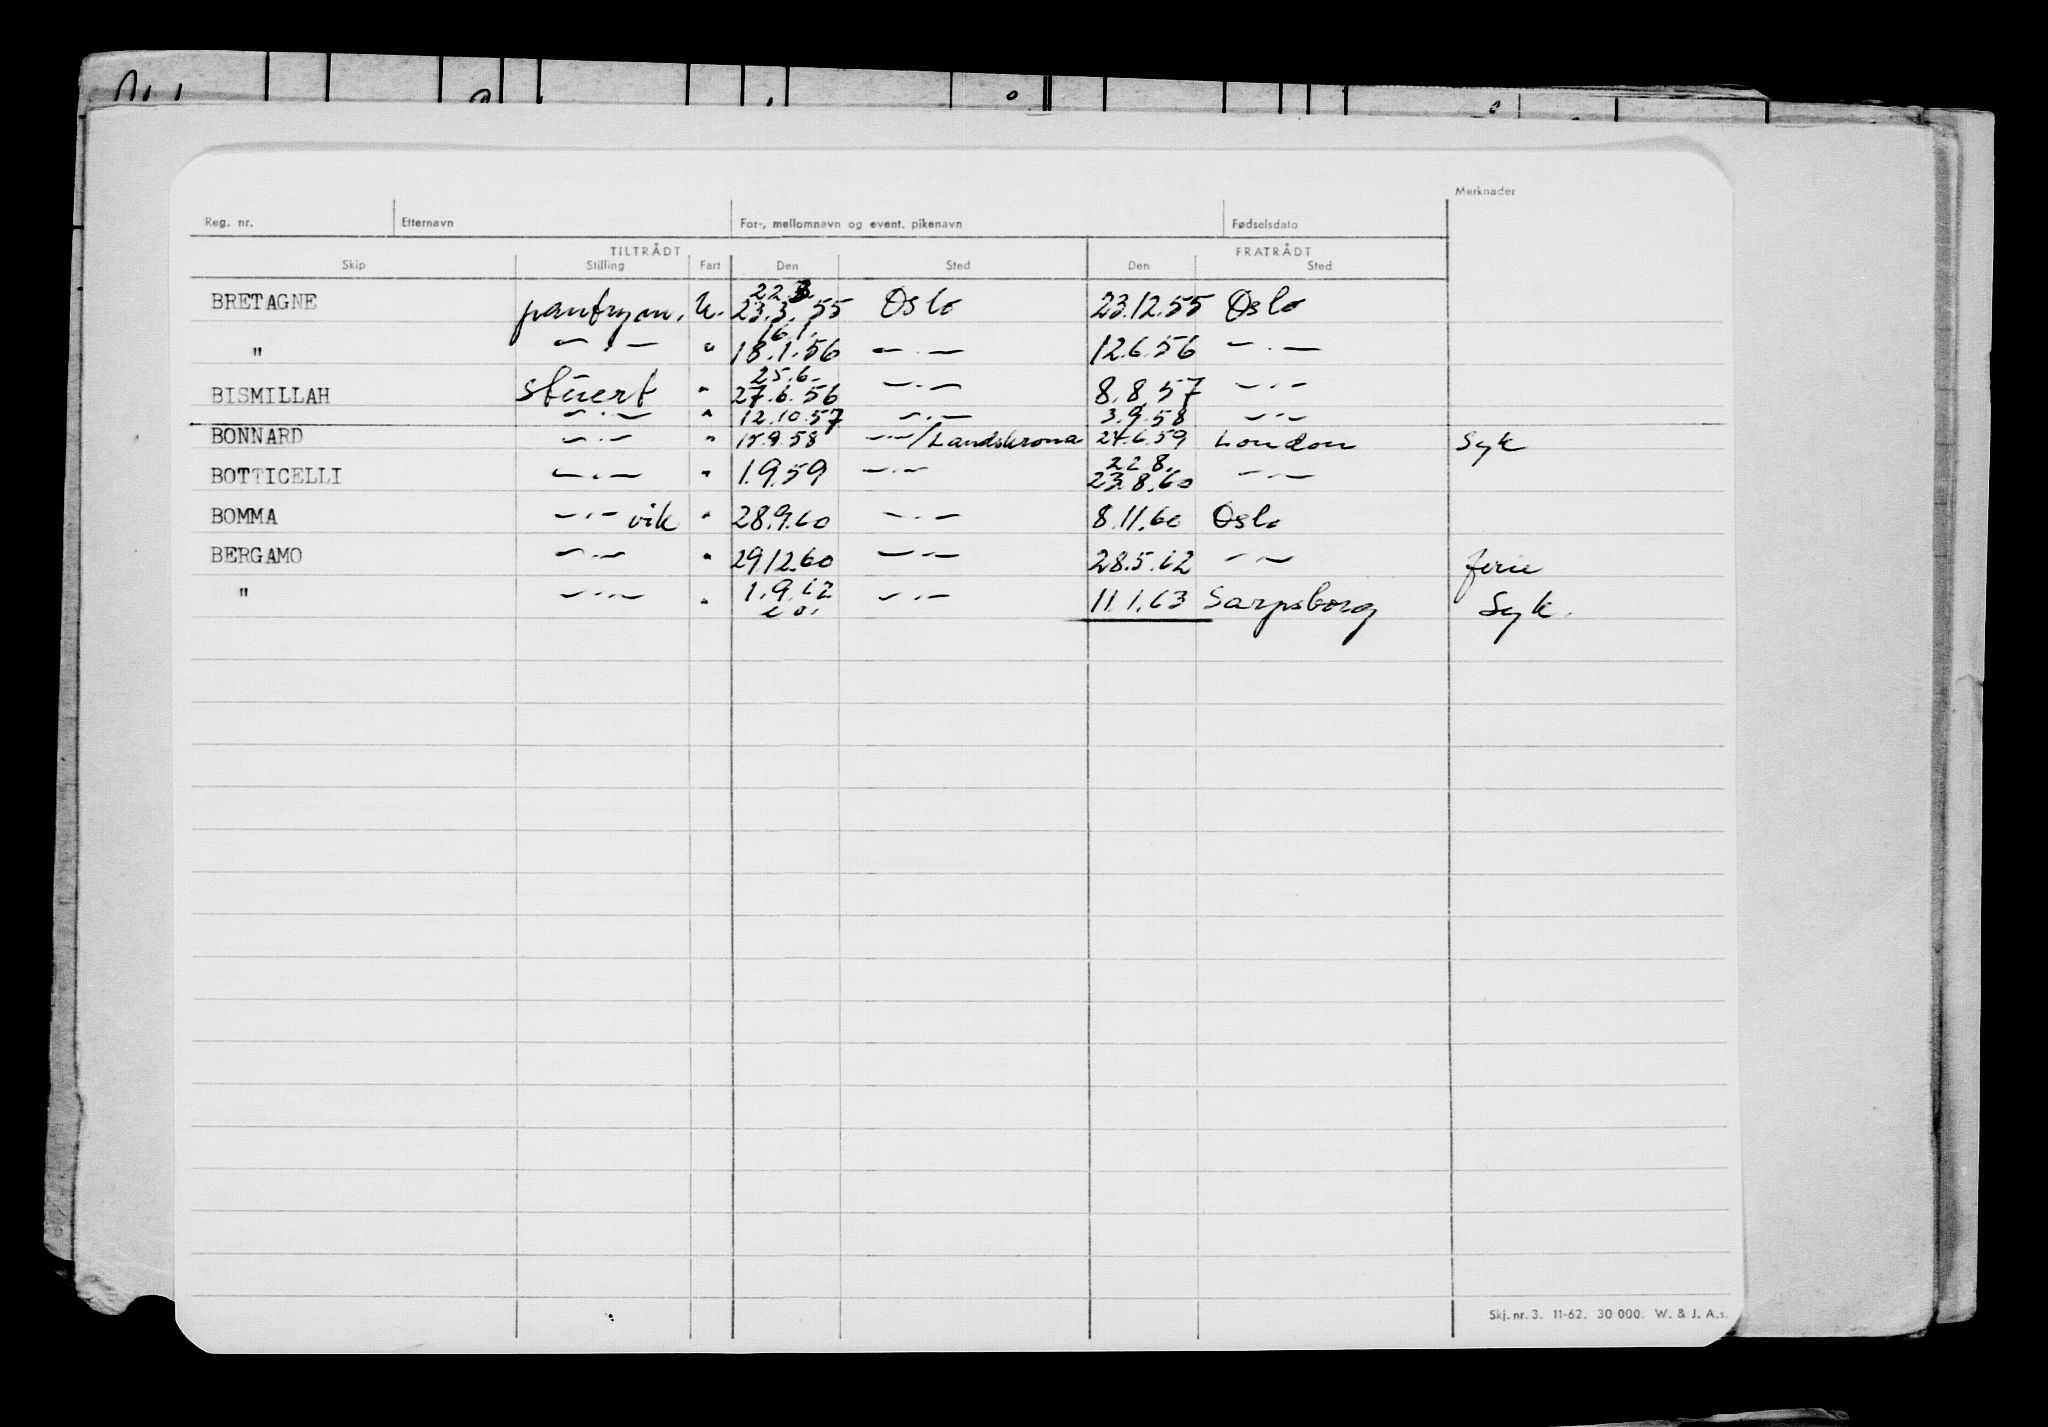 Merknader
Reg. nr. Etternavn For-, mellomnavn og event. pikenavn Fødselsdato
TILTRÅDT FRATRÅDT
Skip Stilling Fart Den Sted Den Sted
22.3.
BRETAGNE pantrym. U. 23.3.55 Oslo 23.12.55 Oslo
16.1.
" —.— " 18.1.56 —.— 12.6.56 —.—
25.6.
BISMILLAH stuert " 27.6.56 —.— 8.8.57 —.—
—.— " 12.10.57 —.— 3.9.58 —.—
BONNARD —.— " 9.58 —.—/Landskrona 24.6.59 London Syk
22.8.
BOTTICELLI —.— " 1.9.59 —.— 23.8.60 —.—
BOMMA —.— vik " 28.9.60 —.— 8.11.60 Oslo
BERGAMO —.— " 29.12.60 —.— 28.5.62 —.— ferie
" —.— " 1.9.62 —.— 11.1.63 Sarpsborg Syk.
Skj. nr. 3. 11-62. 30 000. W. & J. A.s.